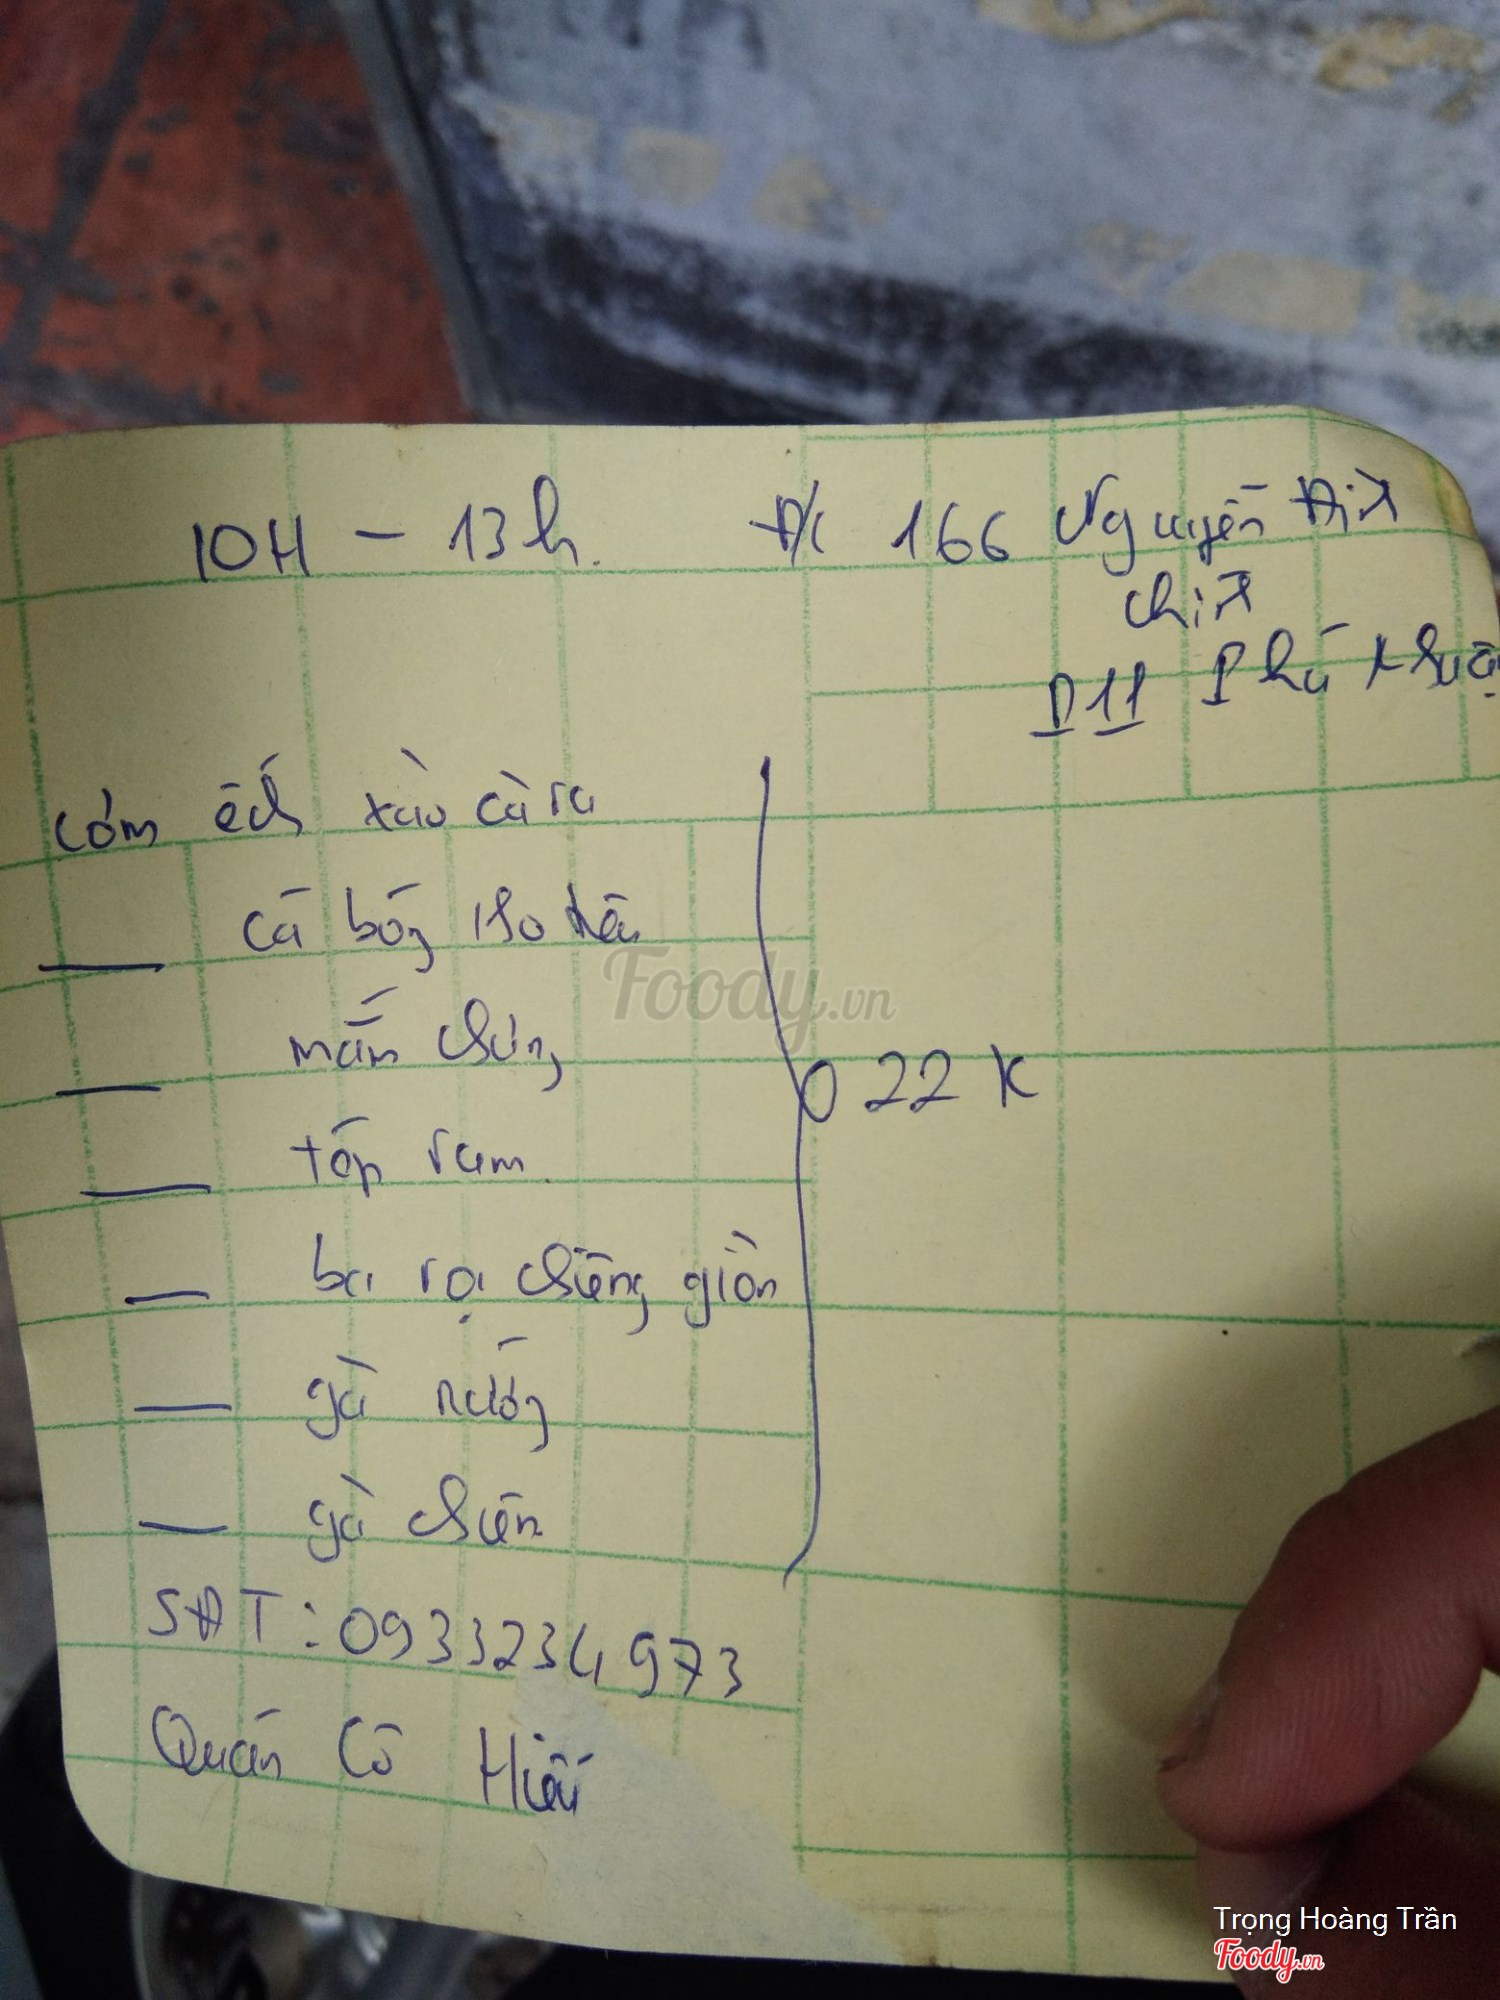 10H - 13h. Đ/c 166 Nguyễn Đình
Chính
P11 Phú Nhuận
Cơm ếch xào cà ri
___ cá bống kho tiêu
___ mắm chưng
___ tóp ram
___ ba rọi chiên giòn
___ gà nướng
___ gà chiên
22K
SĐT: 0933234973
Quán Cô Hiếu
Foody.vn
Trọng Hoàng Trần
Foody.vn